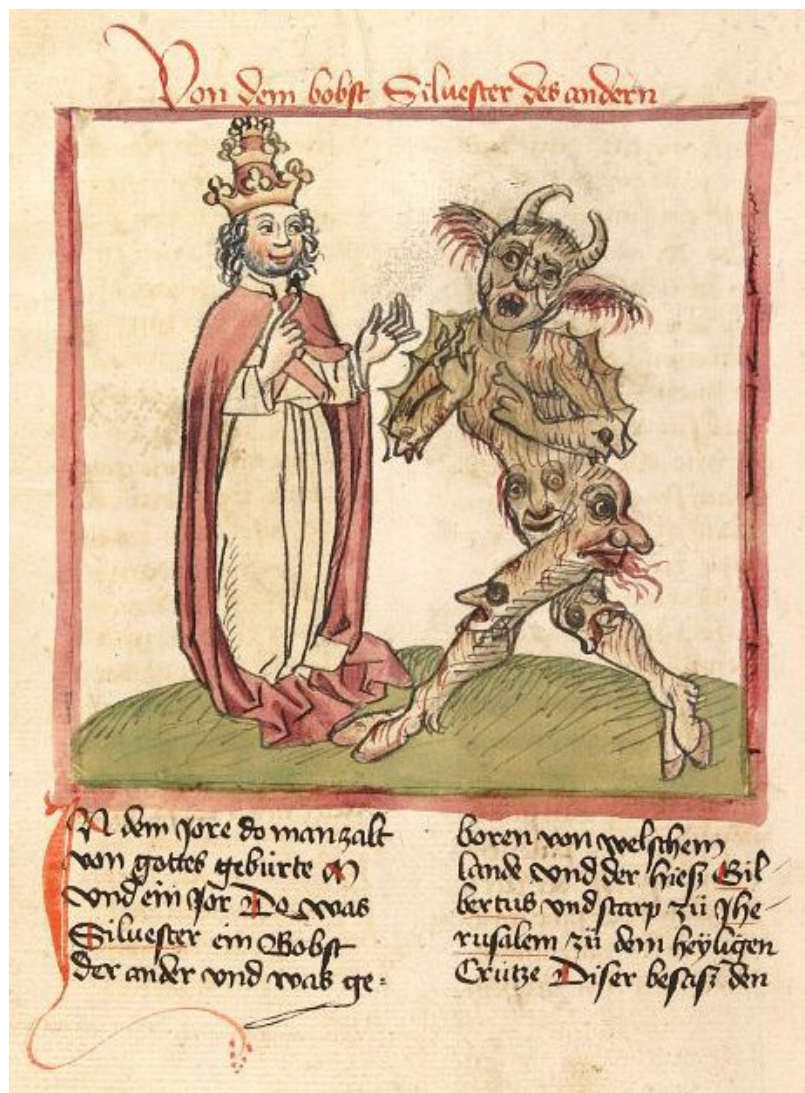 Von dem bobst Siluester des andern
IN dem Jore do man zalt
von gottes gebürte M
vnd ein jor Do was
Siluester ein Bobst
der ander vnd was ge⸗
boren von welschem
lande vnd der hiesz Gil⸗
bertus vnd starp zü Jhe⸗
rusalem zü dem heyligen
Crütze Diser besasz den